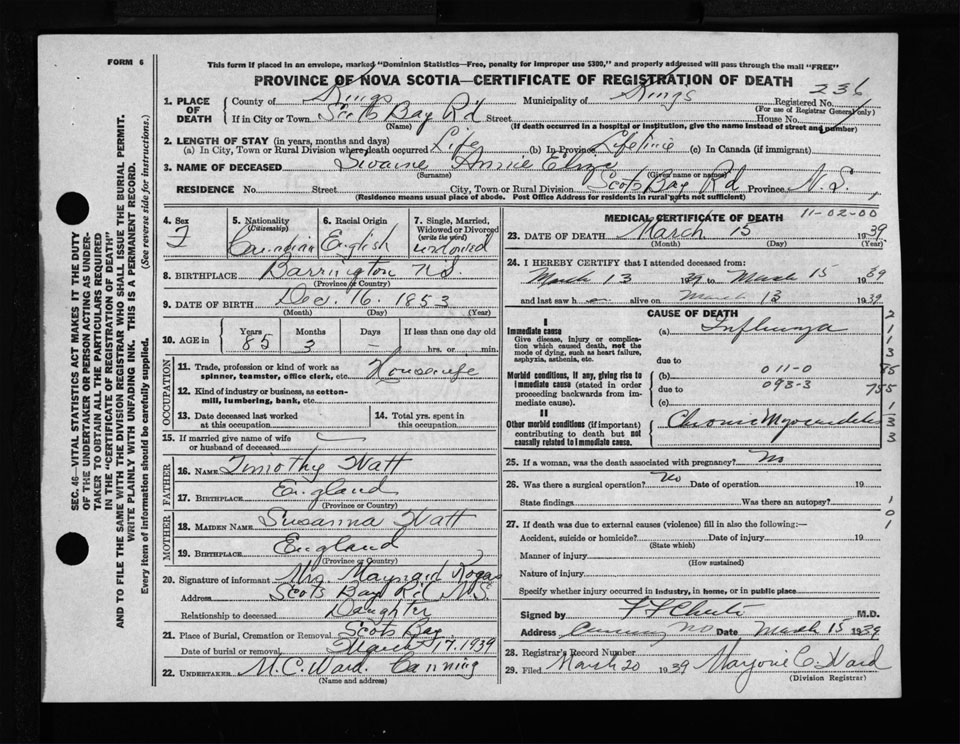 FORM 6
This form if placed in an envelope, marked "Dominion Statistics—Free, penalty for improper use $300," and properly addressed will pass through the mail "FREE"
PROVINCE OF NOVA SCOTIA—CERTIFICATE OF REGISTRATION OF DEATH
236
1. PLACE OF DEATH { County of Kings Municipality of Kings Registered No.
(For use of Registrar General only)
If in City or Town Scots Bay Rd Street House No.
(Name) (If death occurred in a hospital or institution, give the name instead of street and number)
2. LENGTH OF STAY (in years, months and days)
(a) In City, Town or Rural Division where death occurred Life (b) In Province Lifetime (c) In Canada (if immigrant)
3. NAME OF DECEASED Swaine Annie Eliza
(Surname) (Given name or names)
RESIDENCE No. Street City, Town or Rural Division Scots Bay Rd Province N.S.
(Residence means usual place of abode. Post Office Address for residents in rural parts not sufficient)
4. Sex F
5. Nationality (Citizenship) Canadian
6. Racial Origin English
7. Single, Married, Widowed or Divorced (write the word) widowed
8. BIRTHPLACE Barrington N.S.
(Province or Country)
9. DATE OF BIRTH Dec. 16. 1853
(Month) (Day) (Year)
10. AGE in { Years 85 Months 3 Days – If less than one day old
hrs. or min.
OCCUPATION
11. Trade, profession or kind of work as spinner, teamster, office clerk, etc. Housewife
12. Kind of industry or business, as cotton-mill, lumbering, bank, etc.
13. Date deceased last worked at this occupation
14. Total yrs. spent in this occupation
15. If married give name of wife or husband of deceased
FATHER
16. NAME Timothy Watt
17. BIRTHPLACE England
(Province or Country)
MOTHER
18. MAIDEN NAME Susanna Watt
19. BIRTHPLACE England
(Province or Country)
20. Signature of informant Mrs. Maynard
Address Scots Bay Rd. N.S.
Relationship to deceased Daughter
21. Place of Burial, Cremation or Removal Scots Bay
Date of burial or removal March 17. 1939
22. UNDERTAKER M.C. Ward. Canning
(Name and address)
MEDICAL CERTIFICATE OF DEATH
11-02-00
23. DATE OF DEATH March 15 1939
(Month) (Day) (Year)
24. I HEREBY CERTIFY that I attended deceased from:
March 13 1939 to March 15 1939
and last saw h alive on March 13 1939
CAUSE OF DEATH
I
Immediate cause (a) Influenza
Give disease, injury or complication which caused death, not the mode of dying, such as heart failure, asphyxia, asthenia, etc.
due to
Morbid conditions, if any, giving rise to immediate cause (stated in order proceeding backwards from immediate cause).
(b) 011-0
due to 093-3
(c)
II
Other morbid conditions (if important) contributing to death but not causally related to immediate cause. Chronic Myocarditis
25. If a woman, was the death associated with pregnancy? No
26. Was there a surgical operation? No Date of operation 19
State findings Was there an autopsy?
27. If death was due to external causes (violence) fill in also the following:—
Accident, suicide or homicide? Date of injury 19
(State which)
Manner of injury
(How sustained)
Nature of injury
Specify whether injury occurred in industry, in home, or in public place
Signed by M.D.
Address Date March 15 1939
28. Registrar's Record Number
29. Filed March 20 1939 Marjorie C. Ward
(Division Registrar)
SEC. 46—VITAL STATISTICS ACT MAKES IT THE DUTY
OF THE UNDERTAKER OR PERSON ACTING AS UNDER-
TAKER TO OBTAIN ALL THE PARTICULARS REQUIRED
IN THE "CERTIFICATE OF REGISTRATION OF DEATH"
AND TO FILE THE SAME WITH THE DIVISION REGISTRAR WHO SHALL ISSUE THE BURIAL PERMIT.
WRITE PLAINLY WITH UNFADING INK. THIS IS A PERMANENT RECORD.
Every item of information should be carefully supplied. (See reverse side for instructions.)